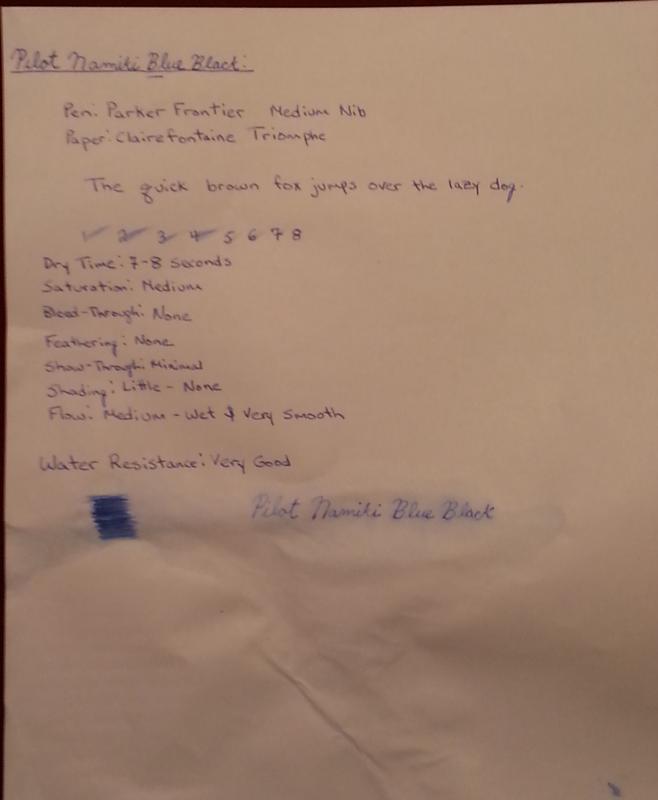 Pilot Namiki Blue Black:
Pen: Parker Frontier Medium Nib
Paper: Clairefontaine Triomphe
The quick brown fox jumps over the lazy dog.
1 2 3 4 5 6 7 8
Dry Time: 7-8 seconds
Saturation: Medium
Bleed-Through: None
Feathering: None
Show-Through: Minimal
Shading: Little - None
Flow: Medium - Wet & Very Smooth
Water Resistance: Very Good
Pilot Namiki Blue Black